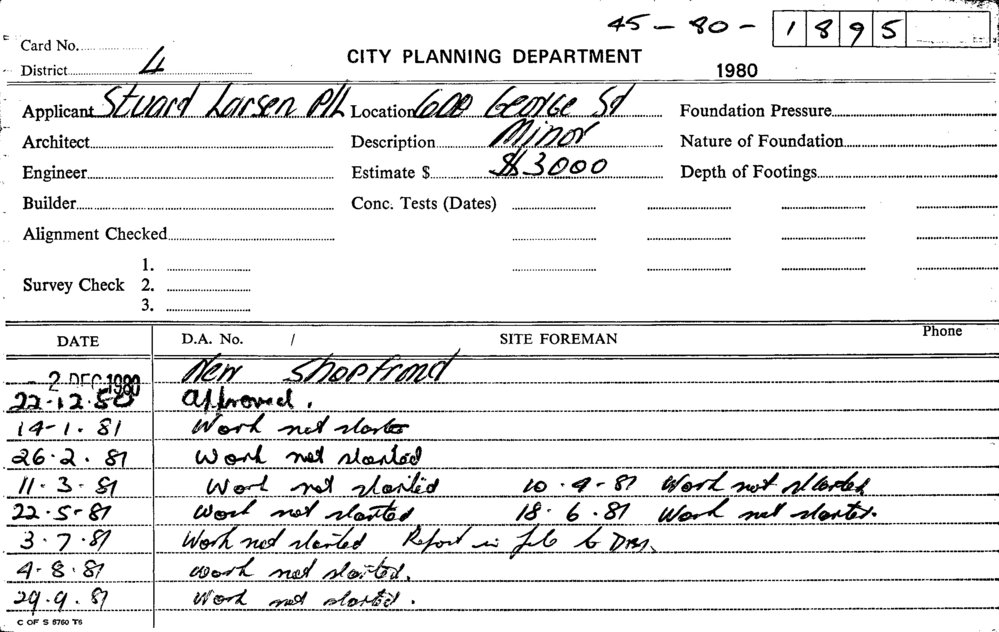 45 - 80 - 1895
Card No.
District 4
CITY PLANNING DEPARTMENT
1980
Applicant Stuard Larsen P/L Location 600 George St Foundation Pressure
Architect Description Minor Nature of Foundation
Engineer Estimate $ $3000 Depth of Footings
Builder Conc. Tests (Dates)
Alignment Checked
1.
Survey Check 2.
3.
DATE D.A. No. / SITE FOREMAN Phone
- 2 DEC 1980 New Shopfrond
22-12.80 Approved.
14-1. 81 Work not started
26.2. 81 Work not started
11.3.81 Work not started 10.4-81 Work not started
22.5-81 Work not started 18.6.81 Work not started.
3.7.81 Work not started Report in file to
4.8.81 work not started.
29.9.81 Work not started.
C OF S 5760 T6